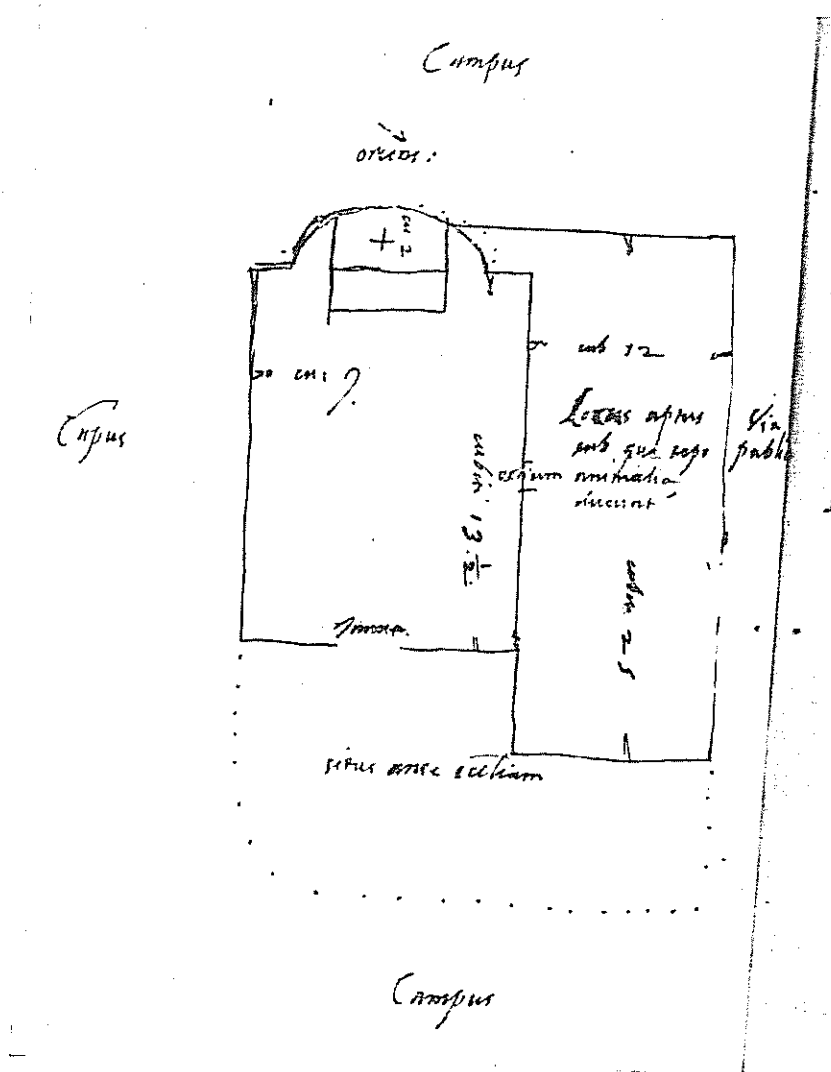 Campus
oriens:
cu 2
cub 12
Cāpus
Locus aptus
sub quo
animalia
ducunt
Via
publi
cubiti 13 1/2
cubiti 25
Janua.
situs ante eccliam
Campus